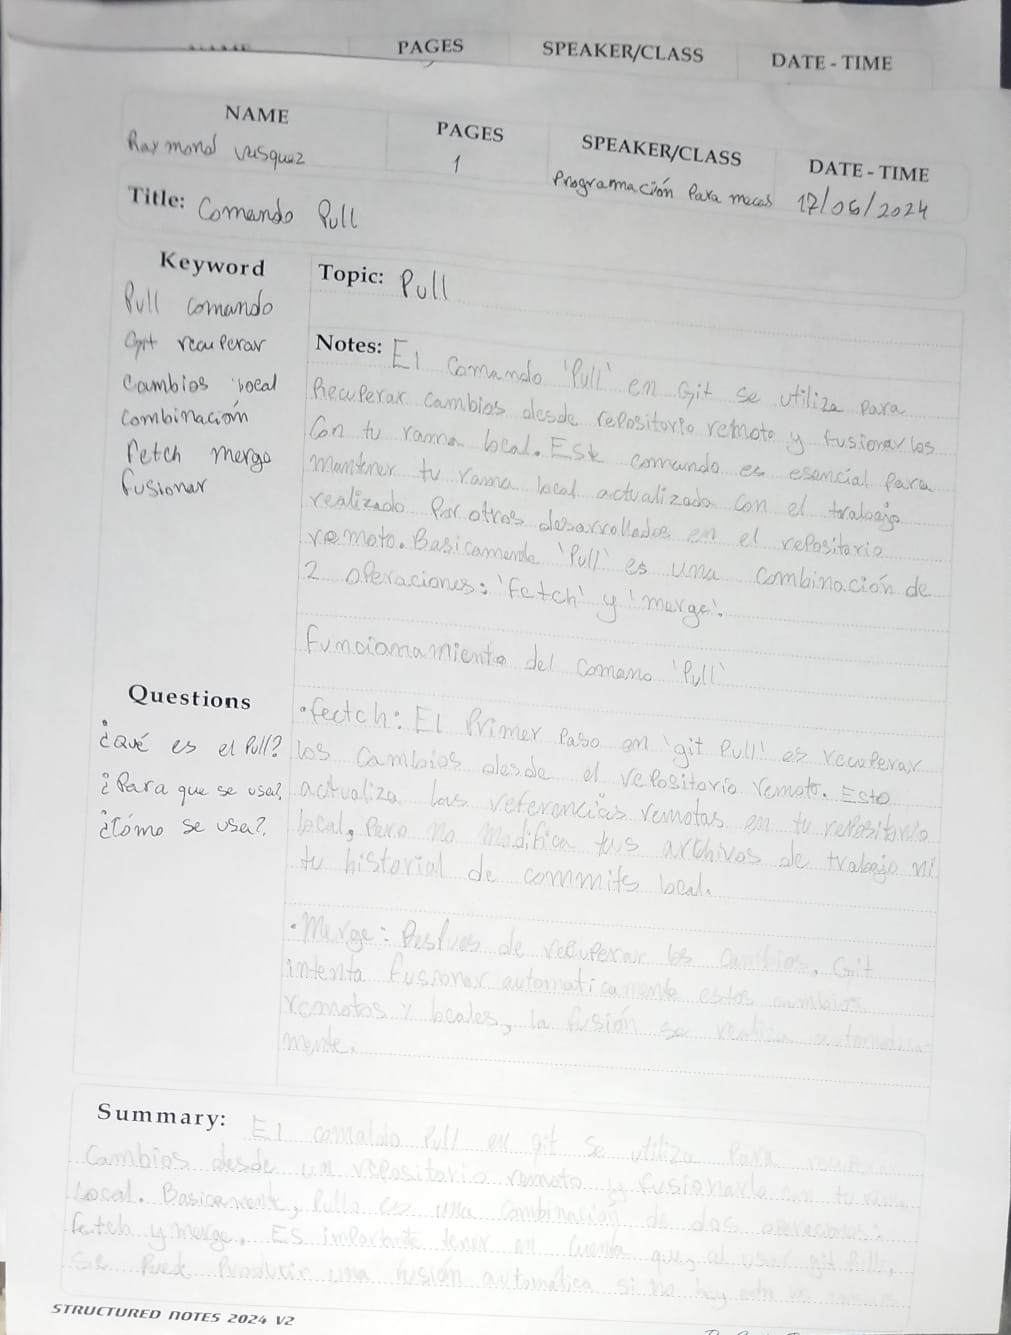 PAGES SPEAKER/CLASS DATE - TIME
NAME PAGES SPEAKER/CLASS DATE - TIME
Raymond Vasquez 1 Programación Para mecas 17/06/2024
Title: Comando Pull
Keyword
Pull comando
Git recuperar
Cambios local
Combinación
Fetch merge
fusionar
Topic: Pull
Notes: El Comando 'Pull' en Git se utiliza para
Recuperar cambios desde repositorio remoto y fusionar los
Con tu rama local. Este comando es esencial para
mantener tu rama local actualizada con el trabajo
realizado Por otros desarrollados en el repositorio
remoto. Basicamente 'Pull' es una combinación de
2 operaciones: 'Fetch' y 'merge'.
Funcionamiento del comano 'Pull'
Questions
¿Qué es el Pull?
¿Para que se usa?
¿Cómo se usa?
• fectch: El Primer Paso en 'git Pull' es recuperar
los cambios desde el repositorio remoto. Esto
actualiza las referencias remotas en tu repositorio
local, Pero no modifica tus archivos de trabajo ni
tu historial de commits local.
• Merge: Despues de recuperar los cambios, Git
intenta fusionar automaticamente estos cambios
remotos y locales, la fusión se realiza automatica
mente.
Summary: El comaldo Pull en git se utiliza Para
Cambios desde un repositorio remoto y fusionarlo con tu rama
Local. Basicamente, Pull es una combinación de dos operaciones:
fetch y merge. Es importante tener en cuenta que, al usar git Pull,
se Puede Producir una fusión automática si no hay
STRUCTURED NOTES 2024 V2